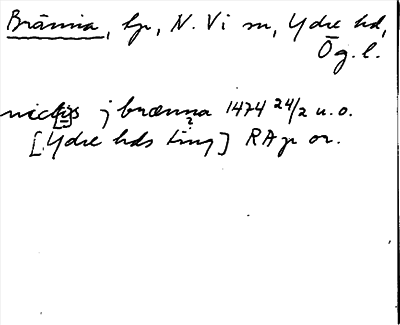 Bränna, by, N. Vi sn, Ydre hd,
Ög. l.
nicl[i]s j brænna 1474 24/2 u.o.
[Ydre hds ting] RAp or.